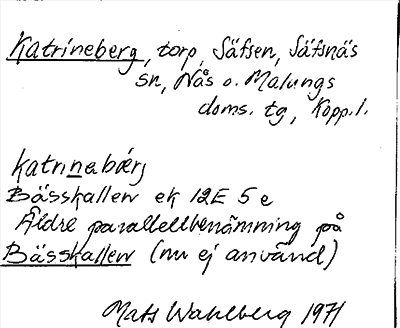 Katrineberg, torp, Säfsen, Säfsnäs
sn, Nås o. Malungs
doms. tg, Kopp.l.
katrinebärj
Bässkallen ek 12E 5e
Äldre parallellbenämning på
Bässkallen (nu ej använd)
Mats Wahlberg 1971